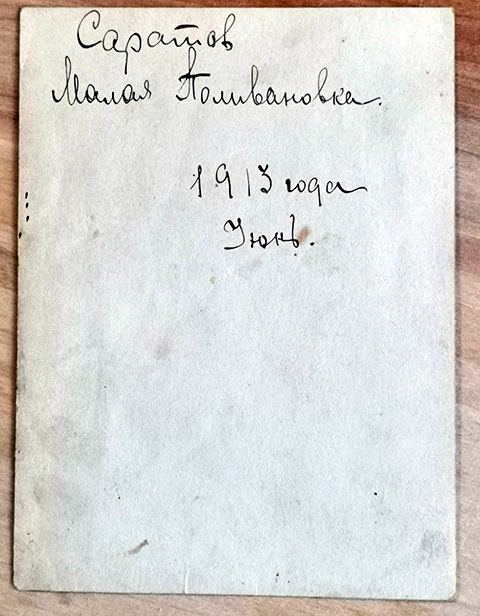 Саратов
Малая Поливановка.
1913 года
Июнь.